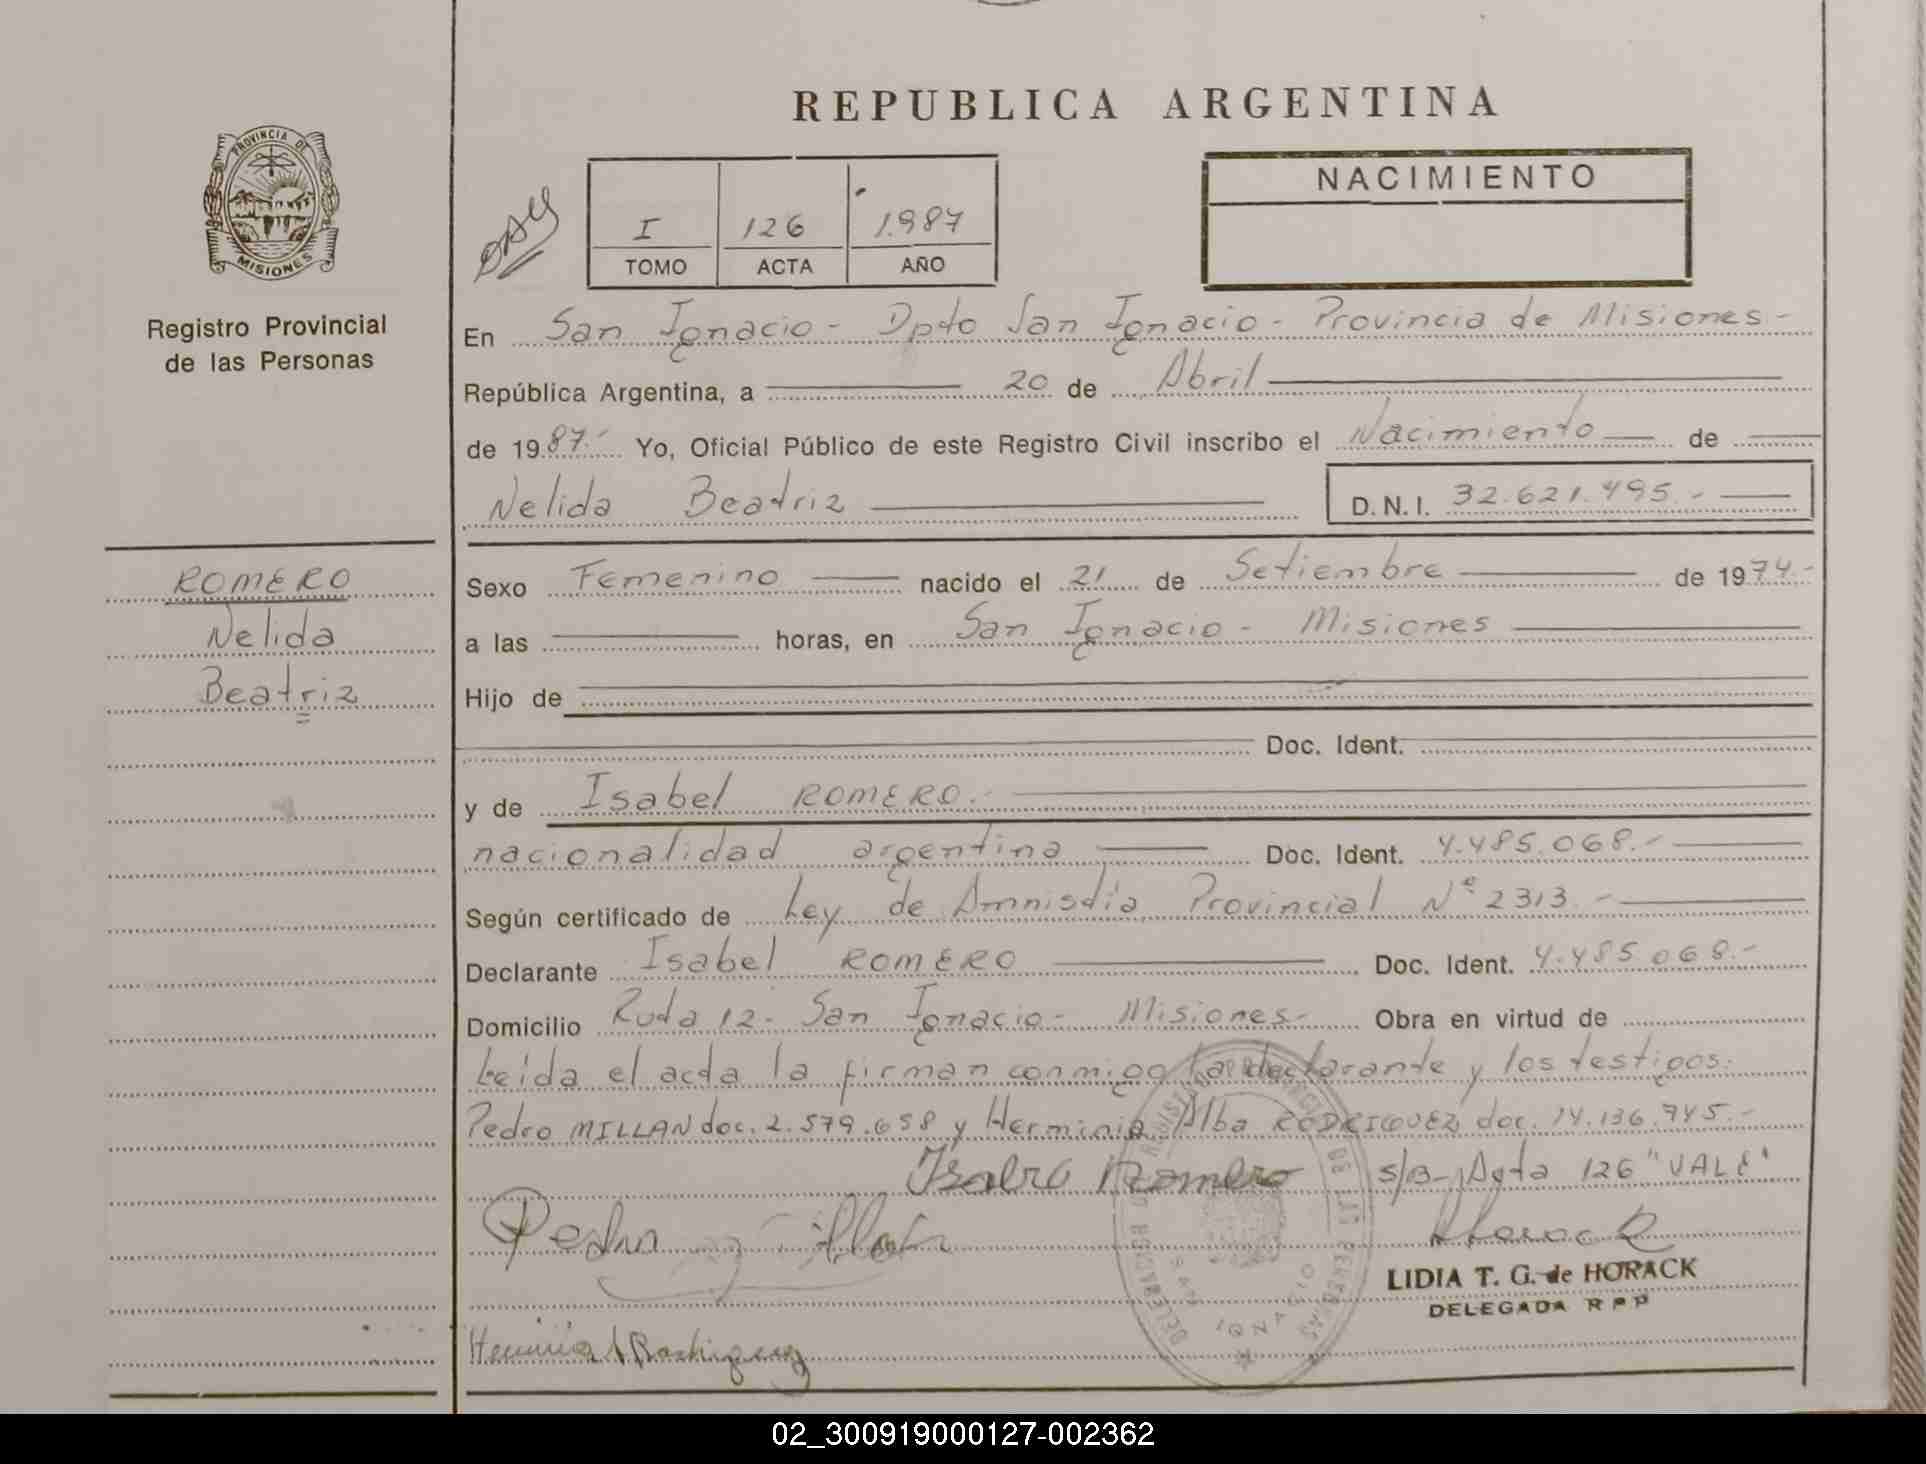 REPUBLICA ARGENTINA
PROVINCIA DE
MISIONES
Registro Provincial
de las Personas
NACIMIENTO
I 126 1.987
TOMO ACTA AÑO
En San Ignacio - Dpto San Ignacio - Provincia de Misiones -
República Argentina, a 20 de Abril
de 1987.- Yo, Oficial Público de este Registro Civil inscribo el Nacimiento de
Nelida Beatriz D.N.I. 32.621.495.-
ROMERO
Nelida
Beatriz
Sexo Femenino nacido el 21 de Setiembre de 1974.-
a las horas, en San Ignacio - Misiones
Hijo de
Doc. Ident.
y de Isabel ROMERO.-
nacionalidad argentina Doc. Ident. 4.485.068.-
Según certificado de Ley de Amnistía Provincial Nº 2313.-
Declarante Isabel ROMERO Doc. Ident. 4.485.068.-
Domicilio Ruta 12 - San Ignacio - Misiones - Obra en virtud de
Leída el acta la firman conmigo la declarante y los testigos:
Pedro MILLAN doc. 2.579.658 y Herminia Alba RODRIGUEZ doc. 14.136.745.-
Romero S/B- Acta 126 "VALE"
Pedro
LIDIA T. G. de HORACK
DELEGADA R P P
SAN IGNACIO
02_300919000127-002362